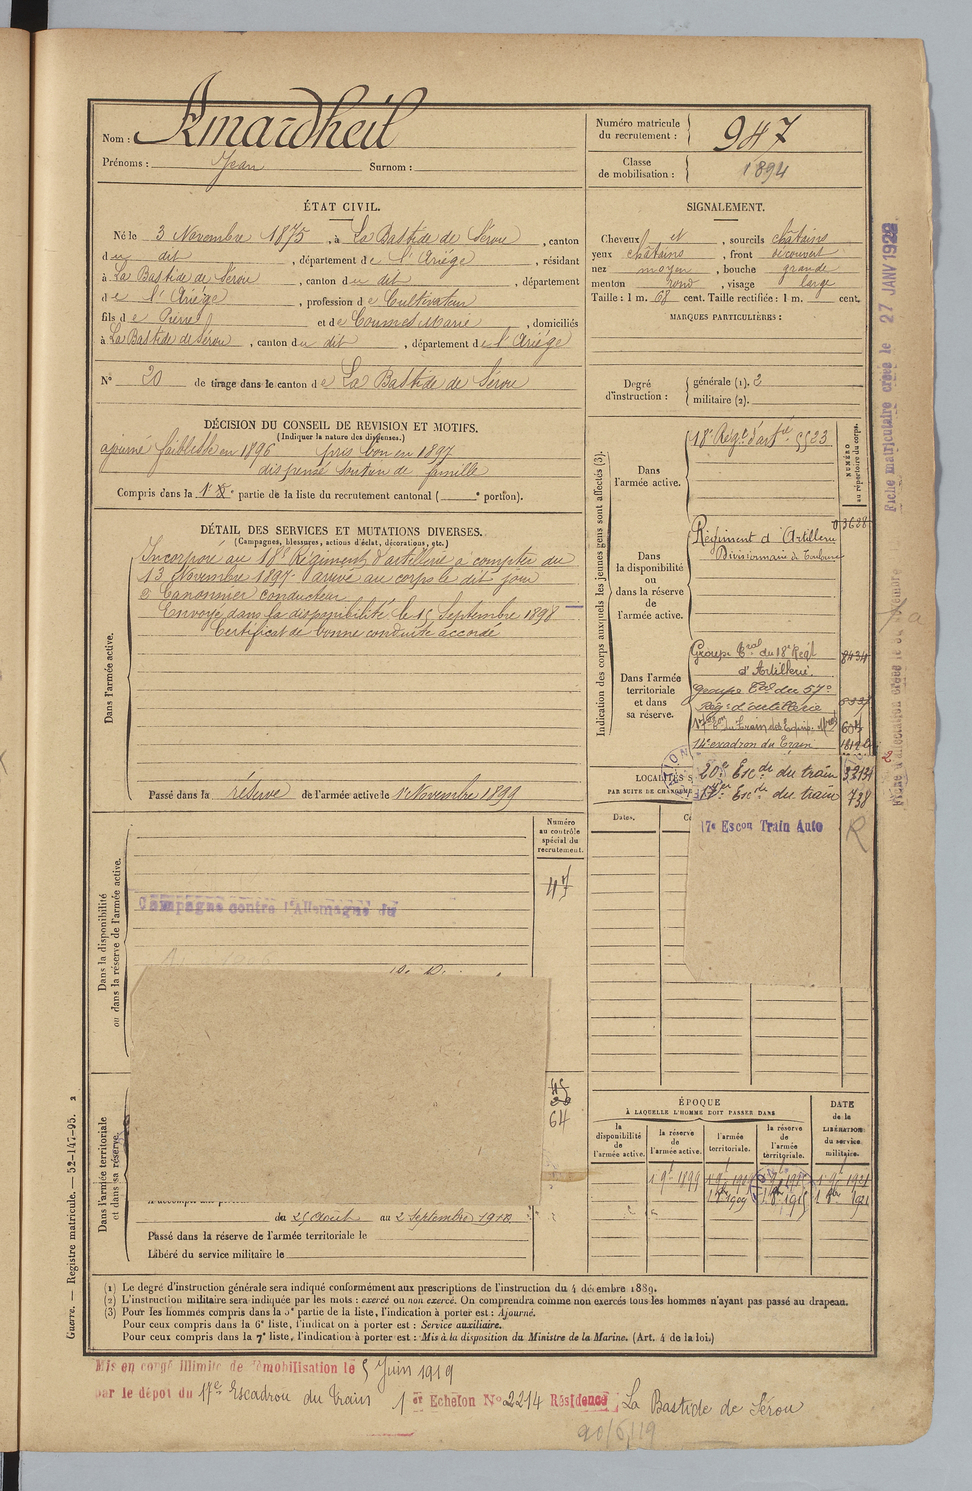 Nom : Amardheil
Prénoms : Jean Surnom :
Numéro matricule du recrutement : 947
Classe de mobilisation : 1894
ÉTAT CIVIL.
Né le 3 Novembre 1875, à La Bastide de Sérou, canton
du dit, département de l'Ariège, résidant
à La Bastide de Sérou, canton du dit, département
de l'Ariège, profession de Cultivateur
fils de Pierre et de Coumes Marie, domiciliés
à La Bastide de Sérou, canton du dit, département de l'Ariège
N° 20 de tirage dans le canton de La Bastide de Sérou
SIGNALEMENT.
Cheveux et, sourcils châtains
yeux châtains, front découvert
nez moyen, bouche grande
menton rond, visage large
Taille : 1 m. 68 cent. Taille rectifiée : 1 m. cent.
MARQUES PARTICULIÈRES :
Degré d'instruction : générale (1). 2
militaire (2).
DÉCISION DU CONSEIL DE REVISION ET MOTIFS.
(Indiquer la nature des dispenses.)
ajourné faiblesse en 1896 pris bon en 1897
dispensé soutien de famille
Compris dans la 1e partie de la liste du recrutement cantonal ( e portion).
DÉTAIL DES SERVICES ET MUTATIONS DIVERSES.
(Campagnes, blessures, actions d'éclat, décorations, etc.)
Dans l'armée active.
Incorporé au 18e Régiment d'artillerie à compter du
13 Novembre 1897 arrivé au corps le dit jour
2e Canonnier conducteur
Envoyé dans la disponibilité le 15 Septembre 1898
Certificat de bonne conduite accordé
Passé dans la réserve de l'armée active le 1er Novembre 1899
Indication des corps auxquels les jeunes gens sont affectés (3).
NUMÉRO au répertoire du corps.
Dans l'armée active.
18e Rég. d'art
Dans la disponibilité ou dans la réserve de l'armée active.
Régiment d'Artillerie
Divisionnaire de Toulouse
Dans l'armée territoriale et dans sa réserve.
Groupe Tal du 18e Régt
d'Artillerie
Groupe Tal du 57e
Rég. d'artillerie
14e escadron du Train
20e Esc. du train
17e Esc. du train 738
17e Escon Train Auto
R
LOCALITÉS
PAR SUITE DE CHANGEME
Dates.
Numéro au contrôle spécial du recrutement.
47
Dans la disponibilité ou dans la réserve de l'armée active.
Campagne contre l'Allemagne du
64
Dans l'armée territoriale et dans sa réserve.
du 25 Août au 2 Septembre 1912
Passé dans la réserve de l'armée territoriale le
Libéré du service militaire le
ÉPOQUE
À LAQUELLE L'HOMME DOIT PASSER DANS
la disponibilité de l'armée active.
la réserve de l'armée active.
l'armée territoriale.
la réserve de l'armée territoriale.
DATE de la LIBÉRATION du service militaire.
(1) Le degré d'instruction générale sera indiqué conformément aux prescriptions de l'instruction du 4 décembre 1889.
(2) L'instruction militaire sera indiquée par les mots : exercé ou non exercé. On comprendra comme non exercés tous les hommes n'ayant pas passé au drapeau.
(3) Pour les hommes compris dans la 5e partie de la liste, l'indication à porter est : Ajourné.
Pour ceux compris dans la 6e liste, l'indication à porter est : Service auxiliaire.
Pour ceux compris dans la 7e liste, l'indication à porter est : Mis à la disposition du Ministre de la Marine. (Art. 4 de la loi.)
Guerre. — Registre matricule. — 52-147-95. 2
Mis en congé illimité de démobilisation le 5 Juin 1919
par le dépot du 17e Escadron du Train 1er Echelon N° 2214 Résidence : La Bastide de Sérou
20/6/19
Fiche matriculaire créée le 27 JANV 1922